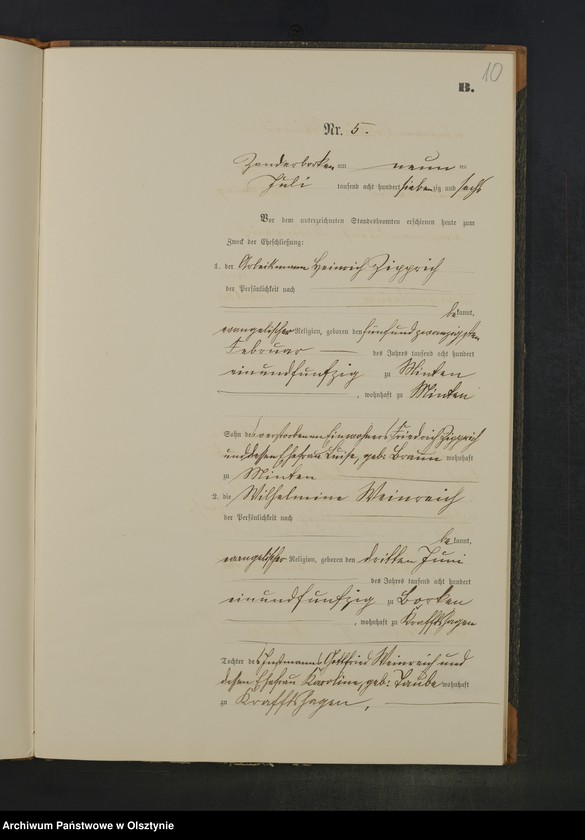 10
B.
Nr. 5.
am neun ten
Juli tausend acht hundert siebenzig und sechs
Vor dem unterzeichneten Standesbeamten erschienen heute zum
Zweck der Eheschließung:
1. der Arbeitsmann Heinrich Zipprich
der Persönlichkeit nach
bekannt,
evangelischer Religion, geboren den fünfundzwanzigsten
Februar des Jahres tausend acht hundert
einundfünfzig zu Minten
, wohnhaft zu Minten
Sohn des verstorbenen Einwohners Friedrich Zipprich
und dessen Ehefrau Luise, geb: Braun wohnhaft
zu Minten
2. die Wilhelmine Weinreich
der Persönlichkeit nach
bekannt,
evangelischer Religion, geboren den dritten Juni
des Jahres tausend acht hundert
einundfünfzig zu Borken
, wohnhaft zu Kraftshagen
Tochter des Instmanns Gottfried Weinreich und
dessen Ehefrau Karoline, geb: Taube wohnhaft
zu Kraftshagen,
Archiwum Państwowe w Olsztynie